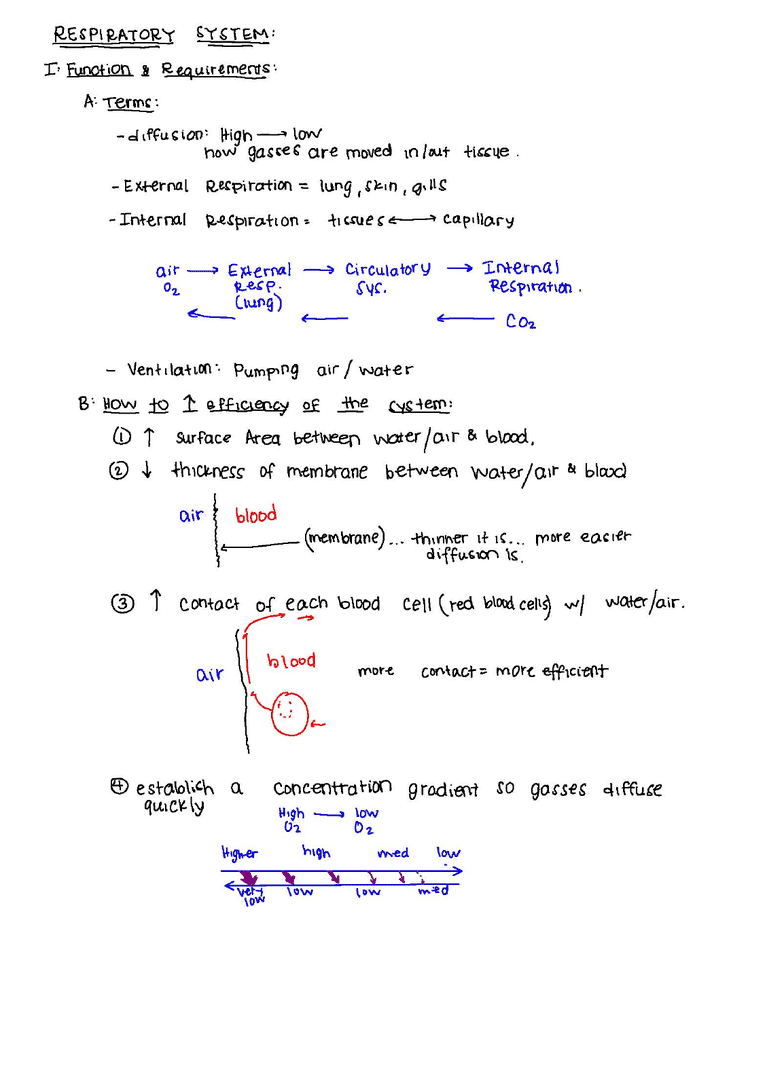 RESPIRATORY SYSTEM:
I: Function & Requirements:
A: Terms:
- diffusion: High → low
how gasses are moved in/out tissue.
- External Respiration = lung, skin, gills
- Internal Respiration = tissues ⟷ capillary
air → External → Circulatory → Internal
O2 Resp. Sys. Respiration.
(lung)
← ← ← CO2
- Ventilation: Pumping air / water
B: How to ↑ efficiency of the system:
① ↑ Surface Area between water/air & blood.
② ↓ thickness of membrane between water/air & blood
air blood
(membrane)... thinner it is... more easier
diffusion is.
③ ↑ contact of each blood cell (red blood cells) w/ water/air.
blood
air more contact = more efficient
④ establish a concentration gradient so gasses diffuse
quickly
High → low
O2 O2
Higher high med low
very low low med
low